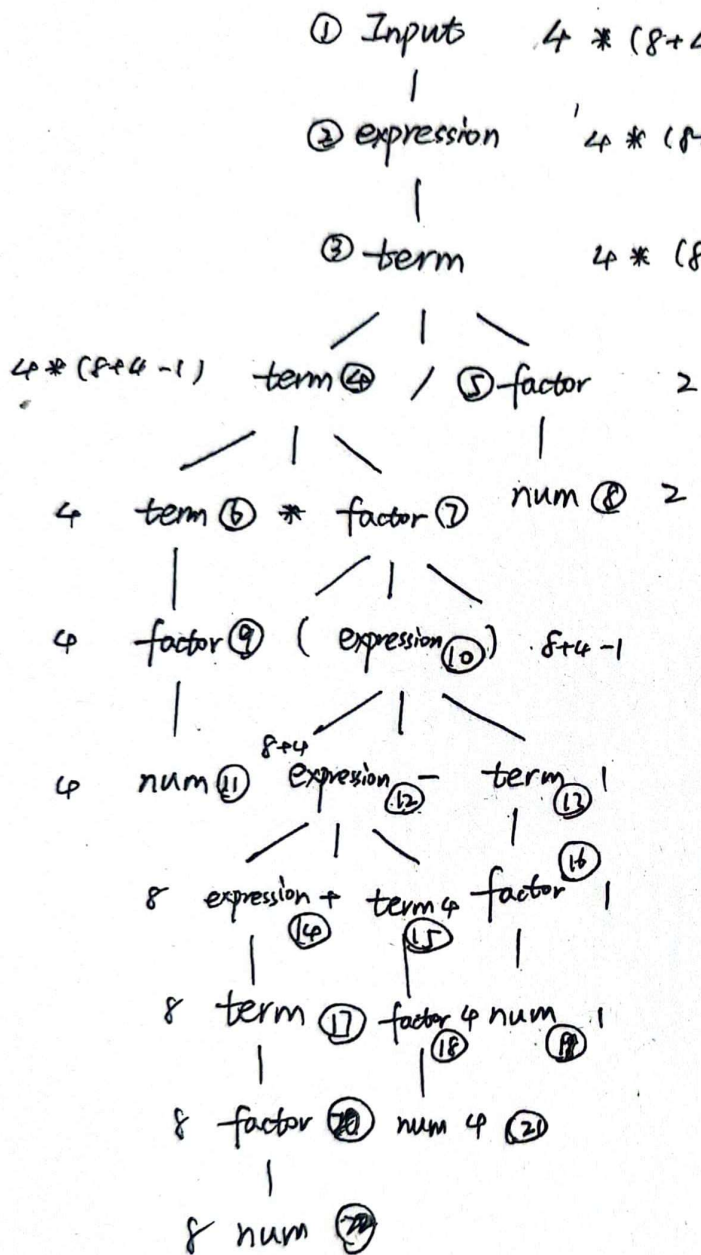 ① Input 4 * (8+4
② expression 4 * (8-
③ term 4 * (8
4*(8+4-1) term ④ / ⑤ factor 2
4 term ⑥ * factor ⑦ num ⑧ 2
4 factor ⑨ ( expression ⑩ ) 8+4-1
8+4
4 num ⑪ expression ⑫ - term ⑬ 1
⑯
8 expression + term 4 factor 1
⑭ ⑮
8 term ⑰ factor 4 num 1
⑱ ⑲
8 factor ⑳ num 4 ㉑
8 num ㉒